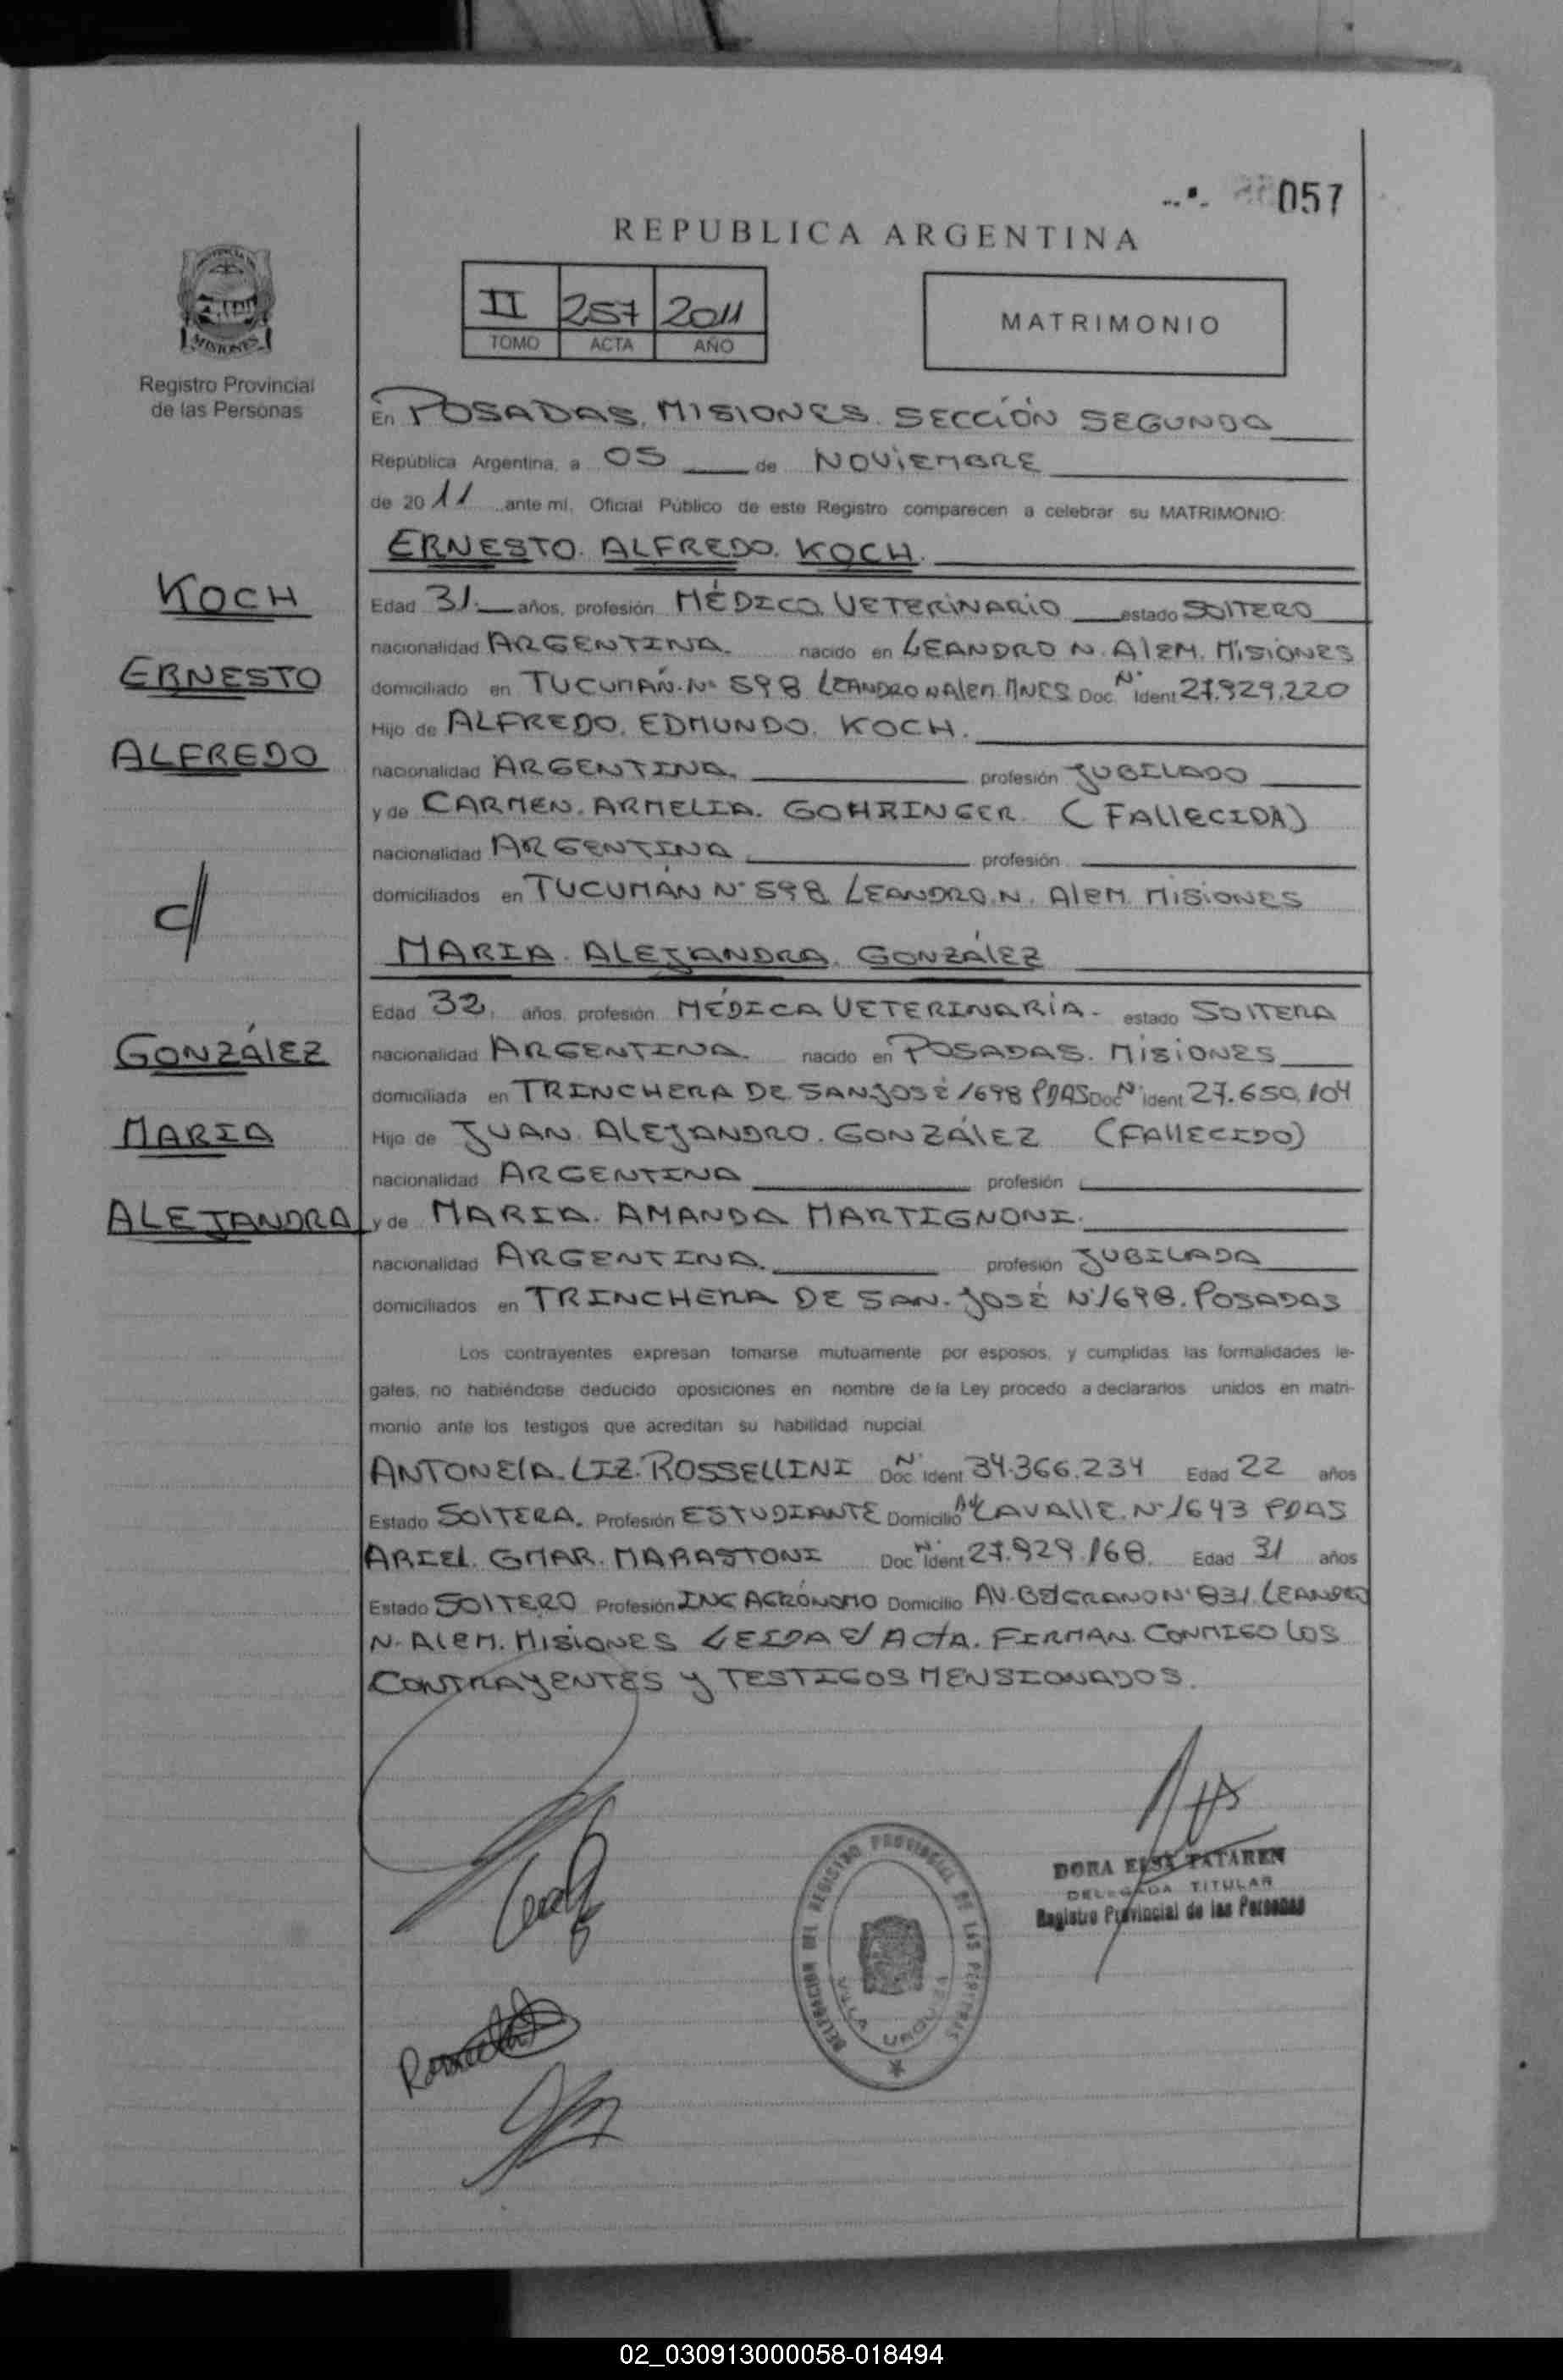 057
REPUBLICA ARGENTINA
II 257 2011
TOMO ACTA AÑO
MATRIMONIO
PROVINCIA DE
MISIONES
Registro Provincial
de las Personas
En POSADAS, MISIONES. SECCIÓN SEGUNDA
República Argentina, a 05 de NOVIEMBRE
de 2011 ante mí, Oficial Público de este Registro comparecen a celebrar su MATRIMONIO:
ERNESTO. ALFREDO. KOCH.
KOCH
ERNESTO
ALFREDO
Edad 31. años, profesión MÉDICO VETERINARIO estado SOlTERO
nacionalidad ARGENTINA. nacido en LEANDRO N. AlEM. MISIONES
domiciliado en TUCUMÁN. Nº 598 LEANDRO N Alem. MNES Doc. Nº Ident 27.929.220
Hijo de ALFREDO. EDMUNDO. KOCH.
nacionalidad ARGENTINA. profesión JUBILADO
y de CARMEN. ARMELIA. GOHRINGER. (FAllECIDA)
nacionalidad ARGENTINA profesión
domiciliados en TUCUMÁN Nº 598 LEANDRO. N. AlEM. MISIONES
c/
MARIA. ALEJANDRA. GONZÁlEZ
GONZÁlEZ
MARIA
ALEJANDRA
Edad 32. años profesión MÉDICA VETERINARIA. estado SOlTERA
nacionalidad ARGENTINA. nacido en POSADAS. MISIONES
domiciliada en TRINCHERA DE SAN JOSÉ 1698 PDAS Doc Nº ident 27.650.104
Hijo de JUAN. ALEJANDRO. GONZÁlEZ (FAllECIDO)
nacionalidad ARGENTINA profesión
y de MARIA. AMANDA MARTIGNONI.
nacionalidad ARGENTINA. profesión JUBILADA
domiciliados en TRINCHERA DE SAN. JOSÉ Nº 1698. POSADAS
Los contrayentes expresan tomarse mutuamente por esposos, y cumplidas las formalidades le-
gales, no habiéndose deducido oposiciones en nombre de la Ley procedo a declararlos unidos en matri-
monio ante los testigos que acreditan su habilidad nupcial.
ANTONElA. LIZ. ROSSELLINI Doc. Nº Ident 34.366.234 Edad 22 años
Estado SOlTERA. Profesión ESTUDIANTE Domicilio AV LAVAllE. Nº 1643 PDAS
ARIEL. OMAR. MARASTONI Doc Nº Ident 27.929.168. Edad 31 años
Estado SOlTERO Profesión ING AGRÓNOMO Domicilio AV. BElGRANO Nº 831 LEANDRO
N. AlEM. MISIONES LEIDA El ActA. FIRMAN. CONMIGO lOS
CONTRAYENTES y TESTIGOS MENSIONADOS.
DORA ELSA TATAREN
DELEGADA TITULAR
Registro Provincial de las Personas
DELEGACION DEL REGISTRO PROVINCIAL DE LAS PERSONAS
VILLA URQUIZA
02_030913000058-018494